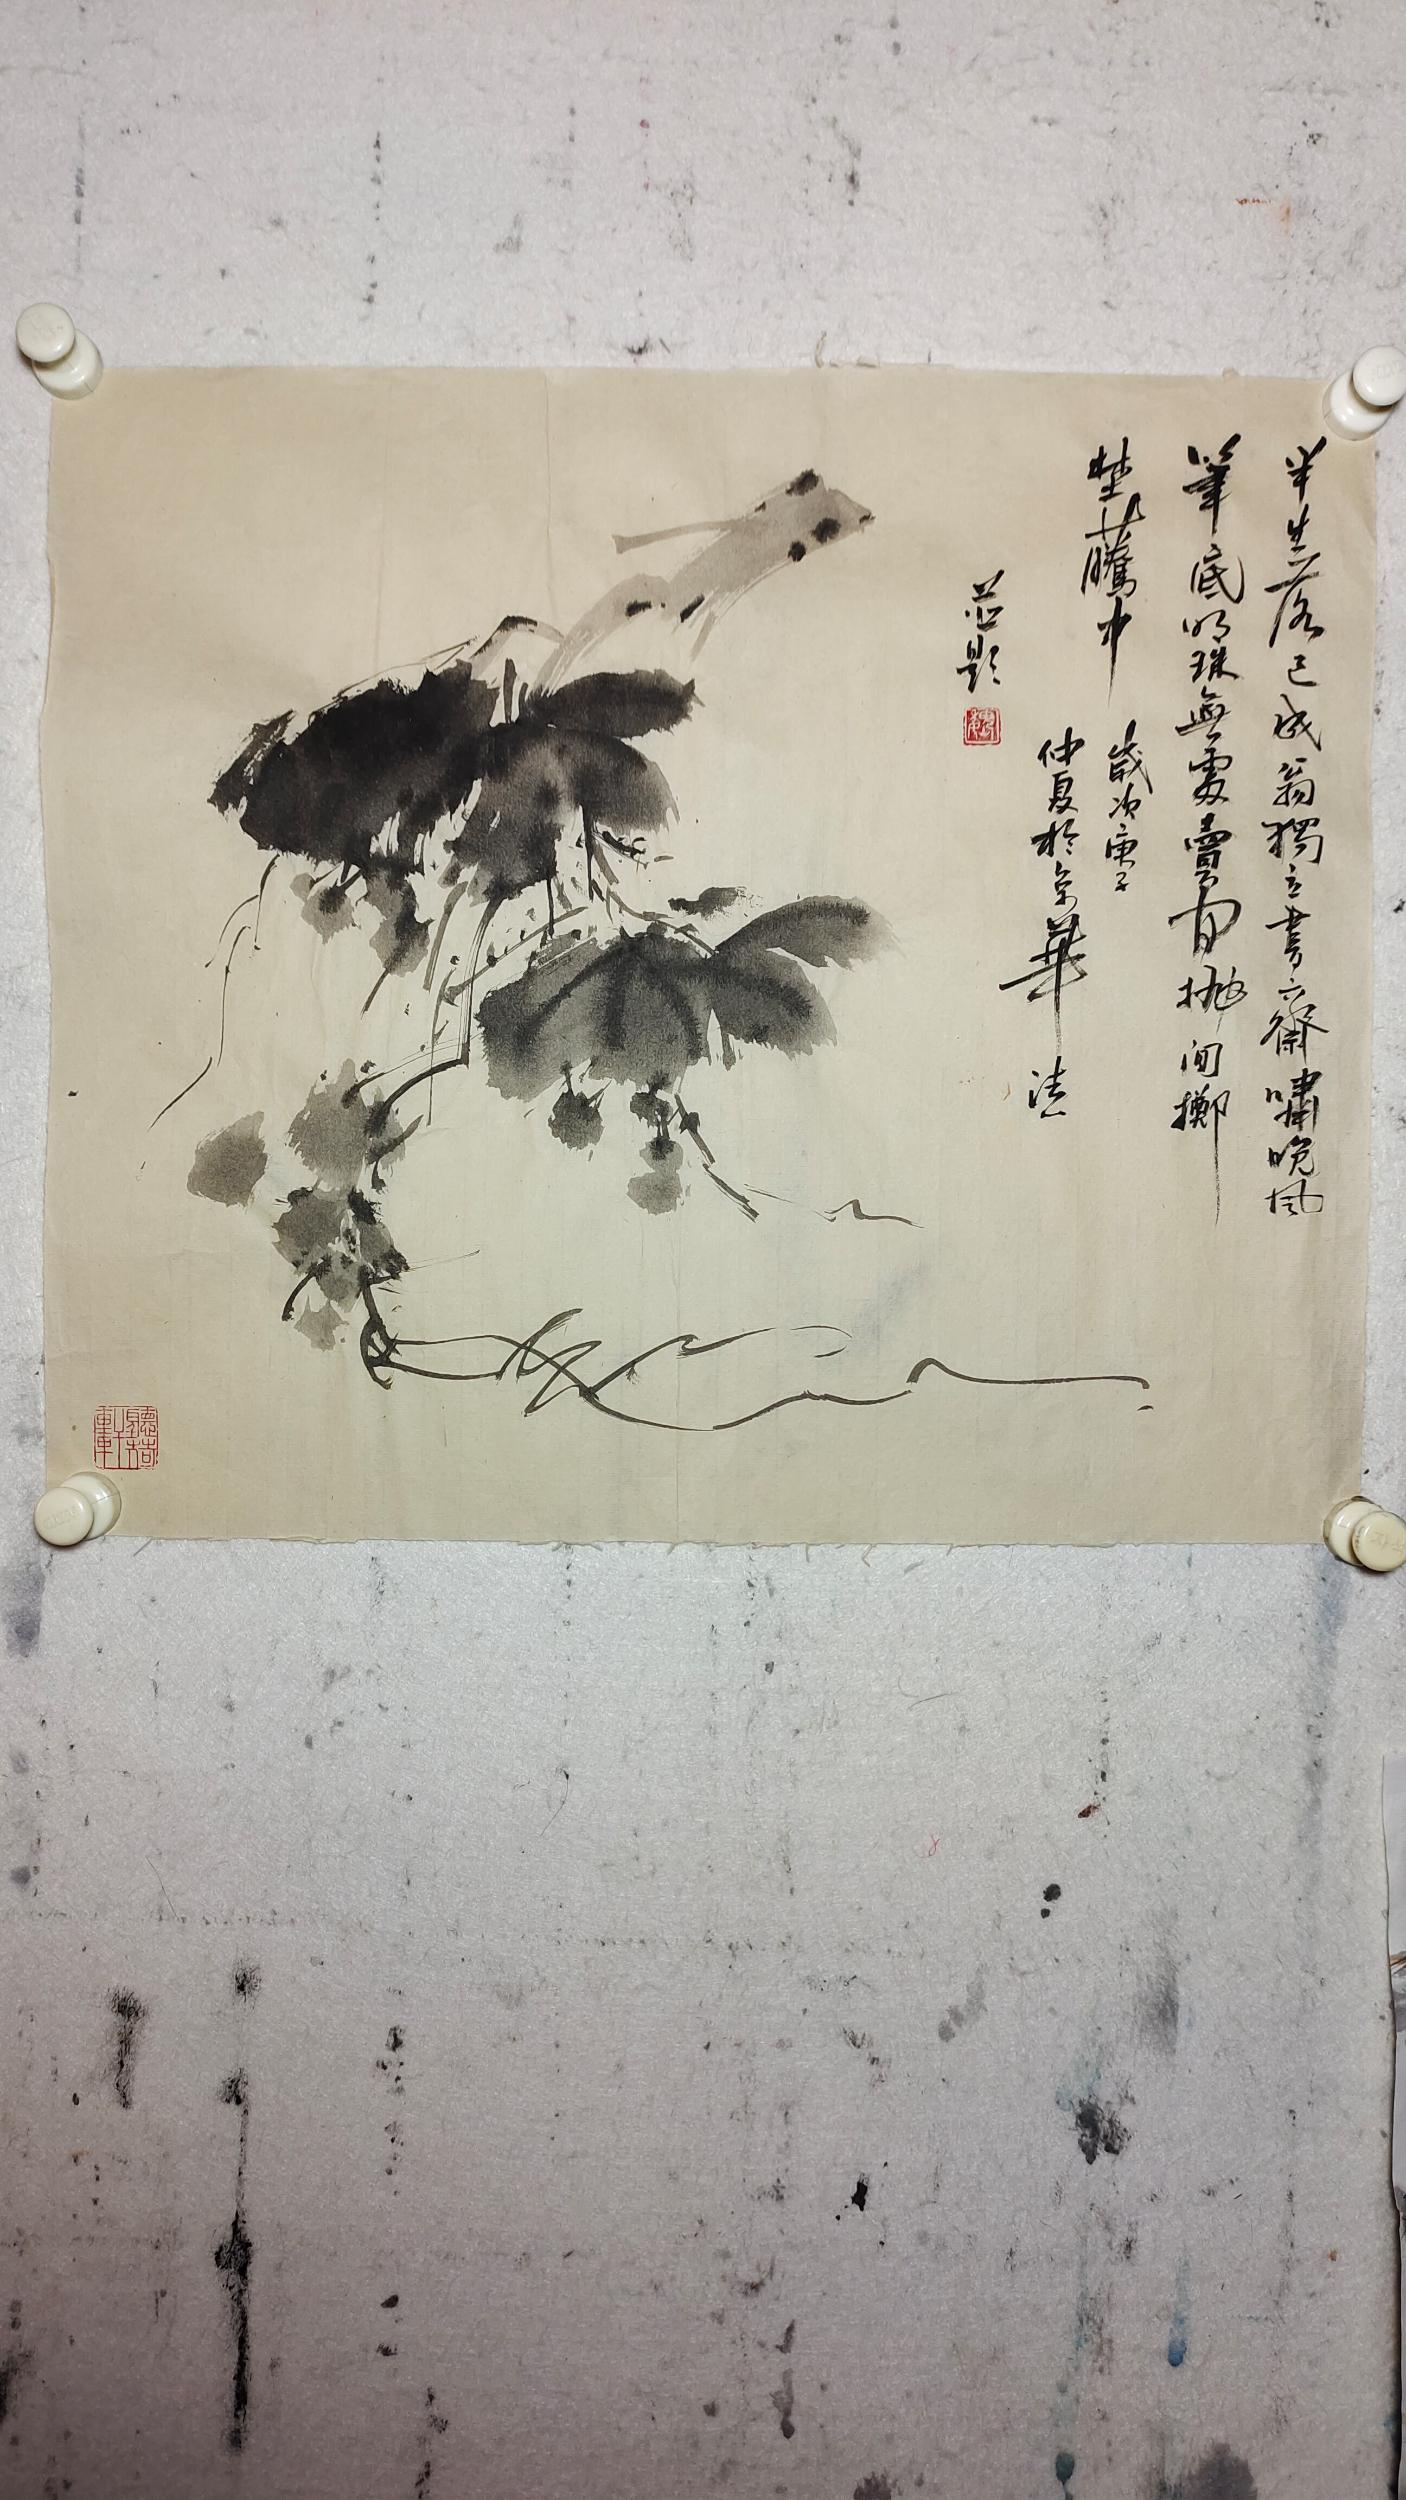 半生落已成翁獨立書齋嘯晚風
筆底明珠無處賣閒拋閒擲
埜藤中
歲次庚子
仲夏於京華
題
聽荷軒